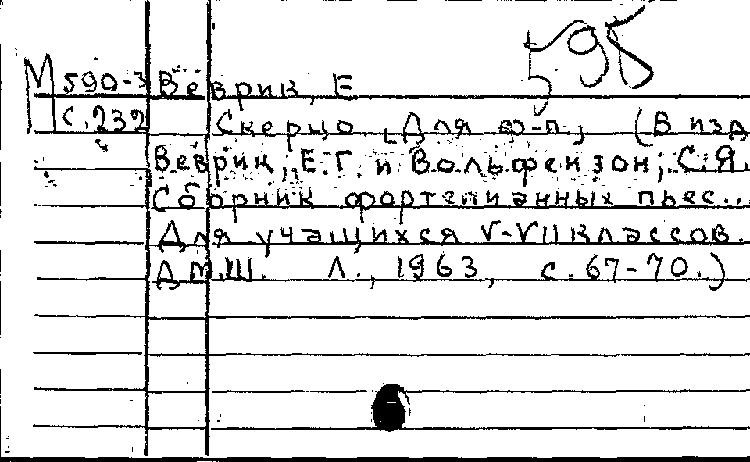 598
М 590-3 Веврик, Е
с. 232 Скерцо [Для ф-п.] (В изд
Веврик, Е.Г. и Вольфензон, С.Я.
Сборник фортепианных пьес...
Для учащихся V-VII классов.
ДМШ. Л., 1963, с. 67-70.)